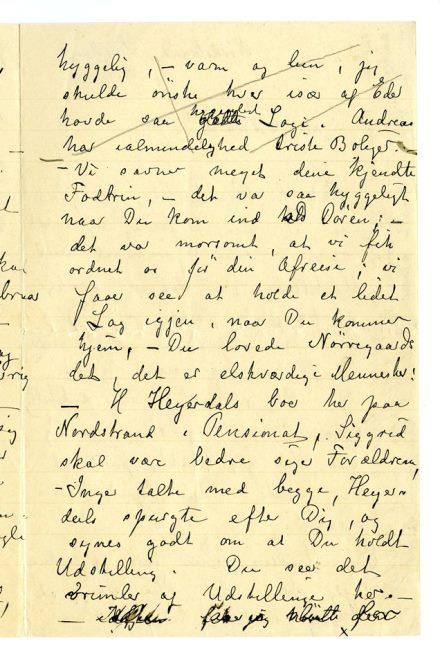 hyggelig, – varm og lun, jeg
skulde ønske hver især af Eder
havde saa hyggeligt Logi. Andreas
har i almindelighed triste Boliger. –
– Vi savner meget dine kjendte
Fodtrin, – det var saa hyggeligt
naar Du kom ind Døren; –
det var morsomt, at vi fik
ordnet os før din Afreise; vi
faar see at holde et lidet
Lag igjen, naar Du kommer
hjem, – Du lovede Nörregaards
det, det er elskværdige Mennesker!
– H Heyerdals boer her paa
Nordstrand i Pensionat, Siggrid
skal være bedre sige Forældrene,
– Inge talte med begge, Heyer=
dals spurgte efter Dig, og
synes godt om at Du holdt
Udstilling. Du seer det
vrimler af Udstillinge her. –
– før jeg